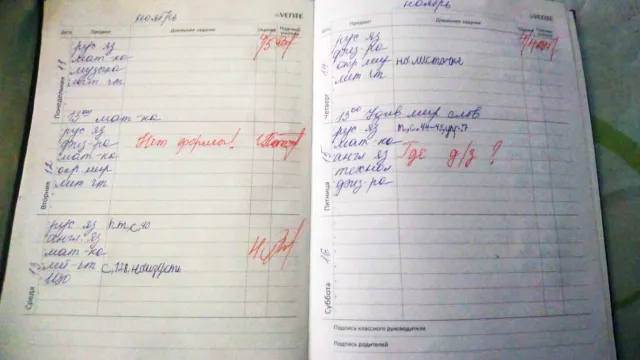 ноябрь
Дата Предмет Домашнее задание Оценка Подпись учителя
Понедельник 11
рус яз 5
мат-ка
музыка
лит чт
13⁰⁰ мат-ка
Вторник 12
рус яз
физ-ра Нет формы!
мат-ка
окр мир
лит чт
Среда 13
рус яз р.т, с. 40
англ яз
мат-ка 4
лит-чт с. 128, наизусть
ИЗО
ноябрь
Предмет Домашнее задание
Четверг 14
рус яз
физ-ра
окр мир на листочке
лит чт
13⁰⁰ Удив мир слов
Пятница 15
рус яз
мат-ка
англ яз Где д/з ?
технол
физ-ра
Суббота 16
Подпись классного руководителя
Подпись родителей